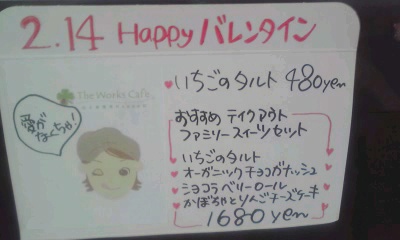 2.14 Happy バレンタイン
The Works Cafe
♥いちごのタルト 480yen
おすすめ テイクアウト
ファミリースイーツセット
いちごのタルト
オーガニックチョコガナッシュ
ショコラベリーロール
かぼちゃとりんごチーズケーキ
1680yen